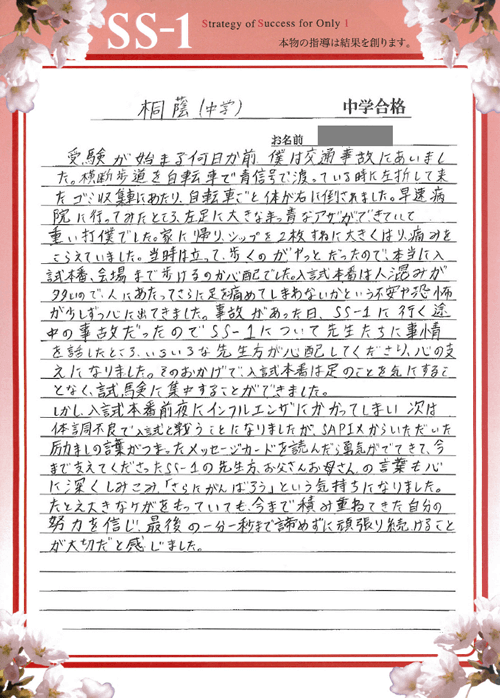 SS-1
Strategy of Success for Only 1
本物の指導は結果を創ります。
桐蔭(中学)
中学合格
お名前
受験が始まる何日か前、僕は交通事故にあいまし
た。横断歩道を自転車で青信号で渡っている時に左折して来
たゴミ収集車にあたり、自転車ごと体が右に倒されました。早速病
院に行ってみたところ、左足に大きなまっ青なアザができていて
重い打僕でした。家に帰り、シップを2枚すねに大きくはり、痛みを
こらえていました。当時は立って、歩くのがやっとだったので、本当に入
試本番、会場まで歩けるのか心配でした。入試本番は人混みが
多いので、人にあたってさらに足を痛めてしまわないかという不安や恐怖
が少しずつ心に出てきました。事故があった日、SS-1に行く途
中の事故だったのでSS-1について先生たちに事情
を話したところ、いろいろな先生方が心配してくださり、心の支
えになりました。そのおかげで、入試本番は足のことを気にするこ
となく、試験に集中することができました。
しかし、入試本番前夜にインフルエンザにかかってしまい次は
体調不良で入試と戦うことになりましたが、SAPIXからいただいた
励ましの言葉がつまったメッセージカードを読んだら勇気がでてきて、今
まで支えてくださったSS-1の先生方、お父さんお母さん、の言葉も心
に深くしみこみ「さらにがんばろう」という気持ちになりました。
たとえ大きなケガをもっていても、今まで積み重ねてきた自分の
努力を信じ、最後の一分一秒まで諦めずに頑張り続けること
が大切だと感じました。